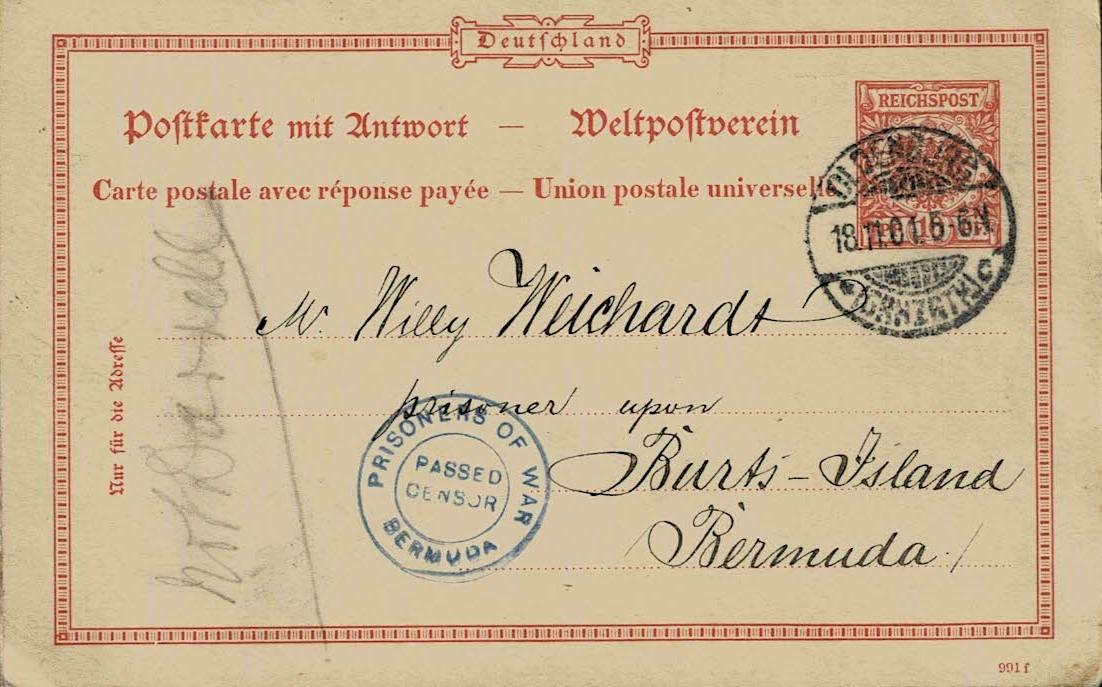 Deutschland
Postkarte mit Antwort — Weltpostverein
Carte postale avec réponse payée — Union postale universelle
REICHSPOST
18.11.01.5-6N
Nur für die Adresse
Mr. Willy Weichardt
prisoner upon
Burts-Island
Bermuda.
PRISONERS OF WAR
PASSED
CENSOR
BERMUDA
991f